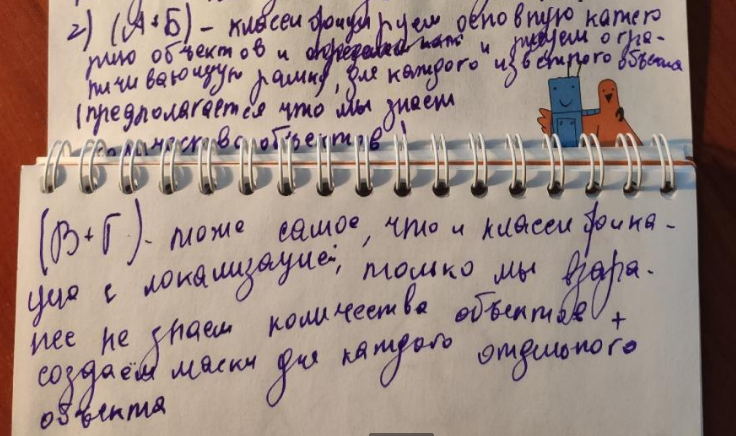 2) (А+Б) - классифицируем основную катего
рию объектов и и рисуем огра-
ничивающую рамку, для каждого известного объекта
(предполагается что мы знаем
количество объектов)
(В+Г) - тоже самое, что и классифика-
ция с локализацией, только мы зара-
нее не знаем количества объектов +
создаём маски для каждого отдельного
объекта